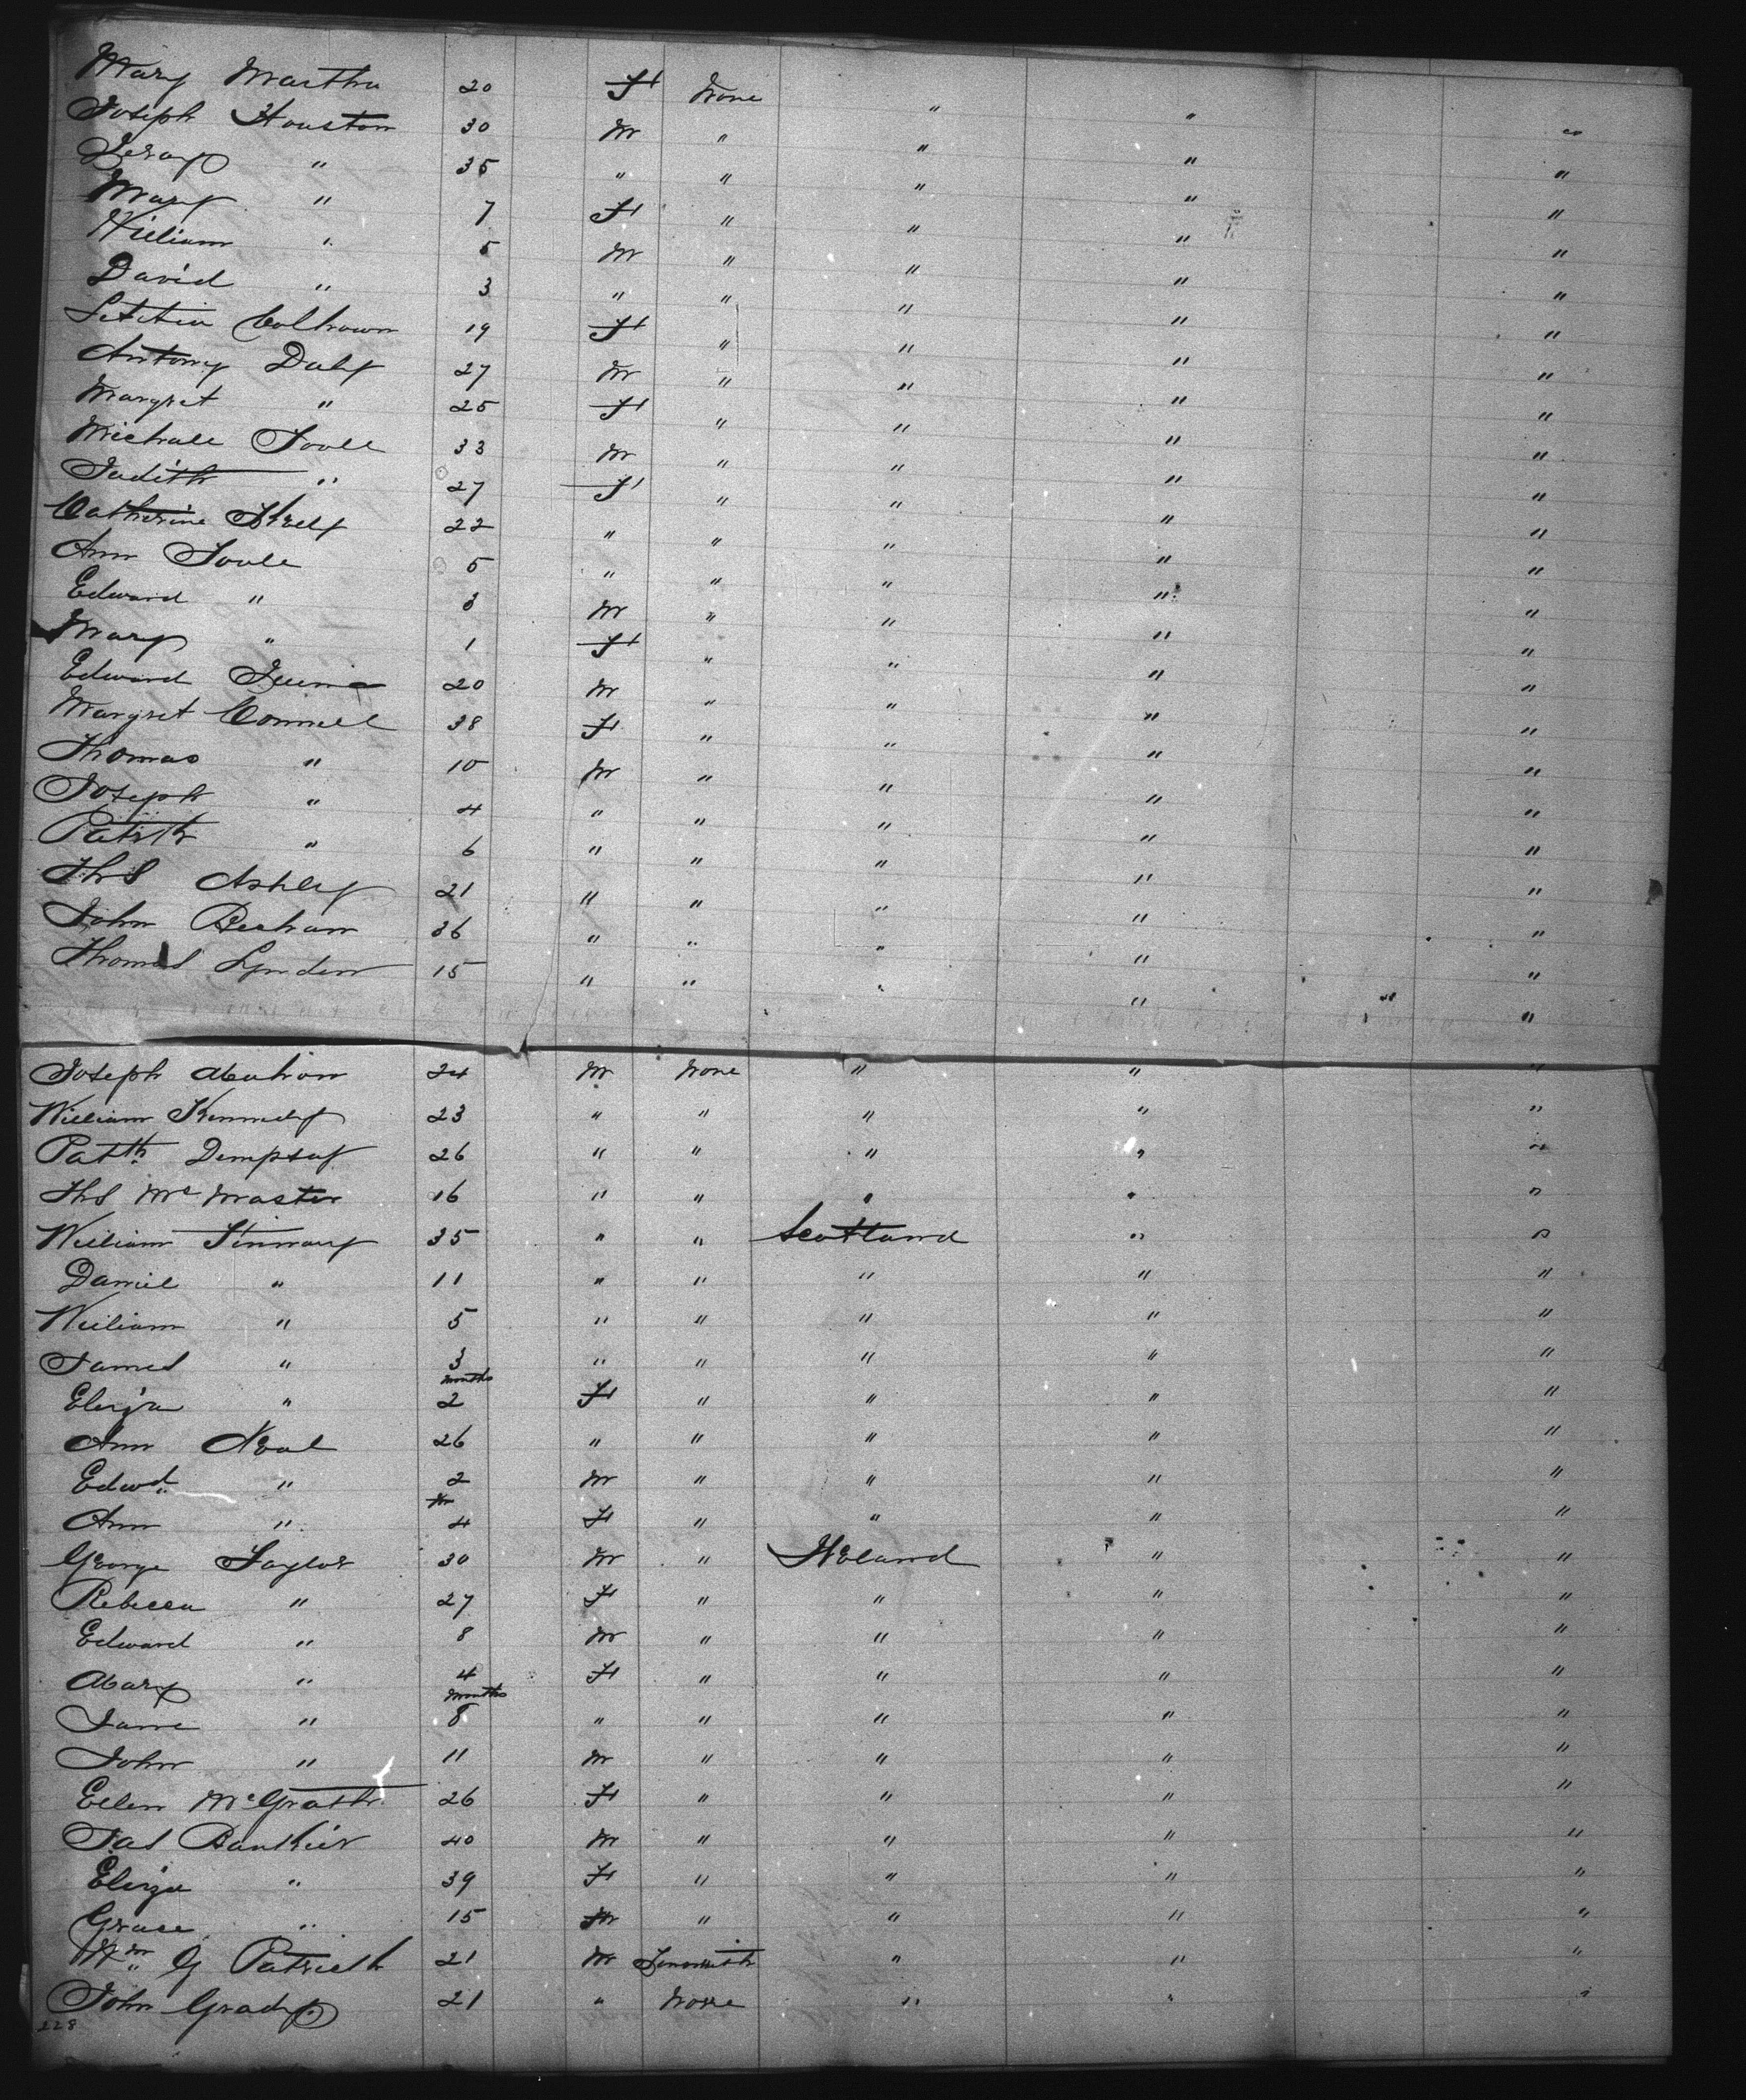 Mary Martha 20 F None " " "
Joseph Houston 30 M " " " "
" 35 " " " " "
Mary " 7 F " " " "
William " 5 M " " " "
David " 3 " " " " "
Letitia 19 F " " " "
Antony Daly 27 M " " " "
Margret " 25 F " " " "
Michall Toole 33 M " " " "
Judith " 27 F " " " "
Catherine 22 " " " " "
Ann Toole 5 " " " " "
Edward " 3 M " " " "
Mary " 1 F " " " "
Edward 20 M " " " "
Margret Connell 38 F " " " "
Thomas " 10 M " " " "
Joseph " 4 " " " " "
Patrk " 6 " " " " "
Ths Ashley 21 " " " " "
John 36 " " " " "
Thomas Lynden 15 " " " " "
Joseph 24 M None " " "
William Kennedy 23 " " " " "
Patk Dempsey 26 " " " " "
Ths Mc Master 16 " " " " "
William 35 " " Scotland " "
Daniel " 11 " " " " "
William " 5 " " " " "
James " 3 " " " " "
Eliza " months 2 F " " " "
Ann Neal 26 " " " " "
Edwd " 2 M " " " "
Ann " 4 F " " " "
George Taylor 30 M " Ireland " "
Rebecca " 27 F " " " "
Edward " 8 M " " " "
Mary " 4 F " " " "
Jane " months 8 " " " " "
John " 11 M " " " "
Ellen McGrath 26 F " " " "
Jas 40 M " " " "
Eliza " 39 F " " " "
Grace " 15 " " " "
Wm G Patrick 21 M " " "
John Grady 21 " None " " "
228